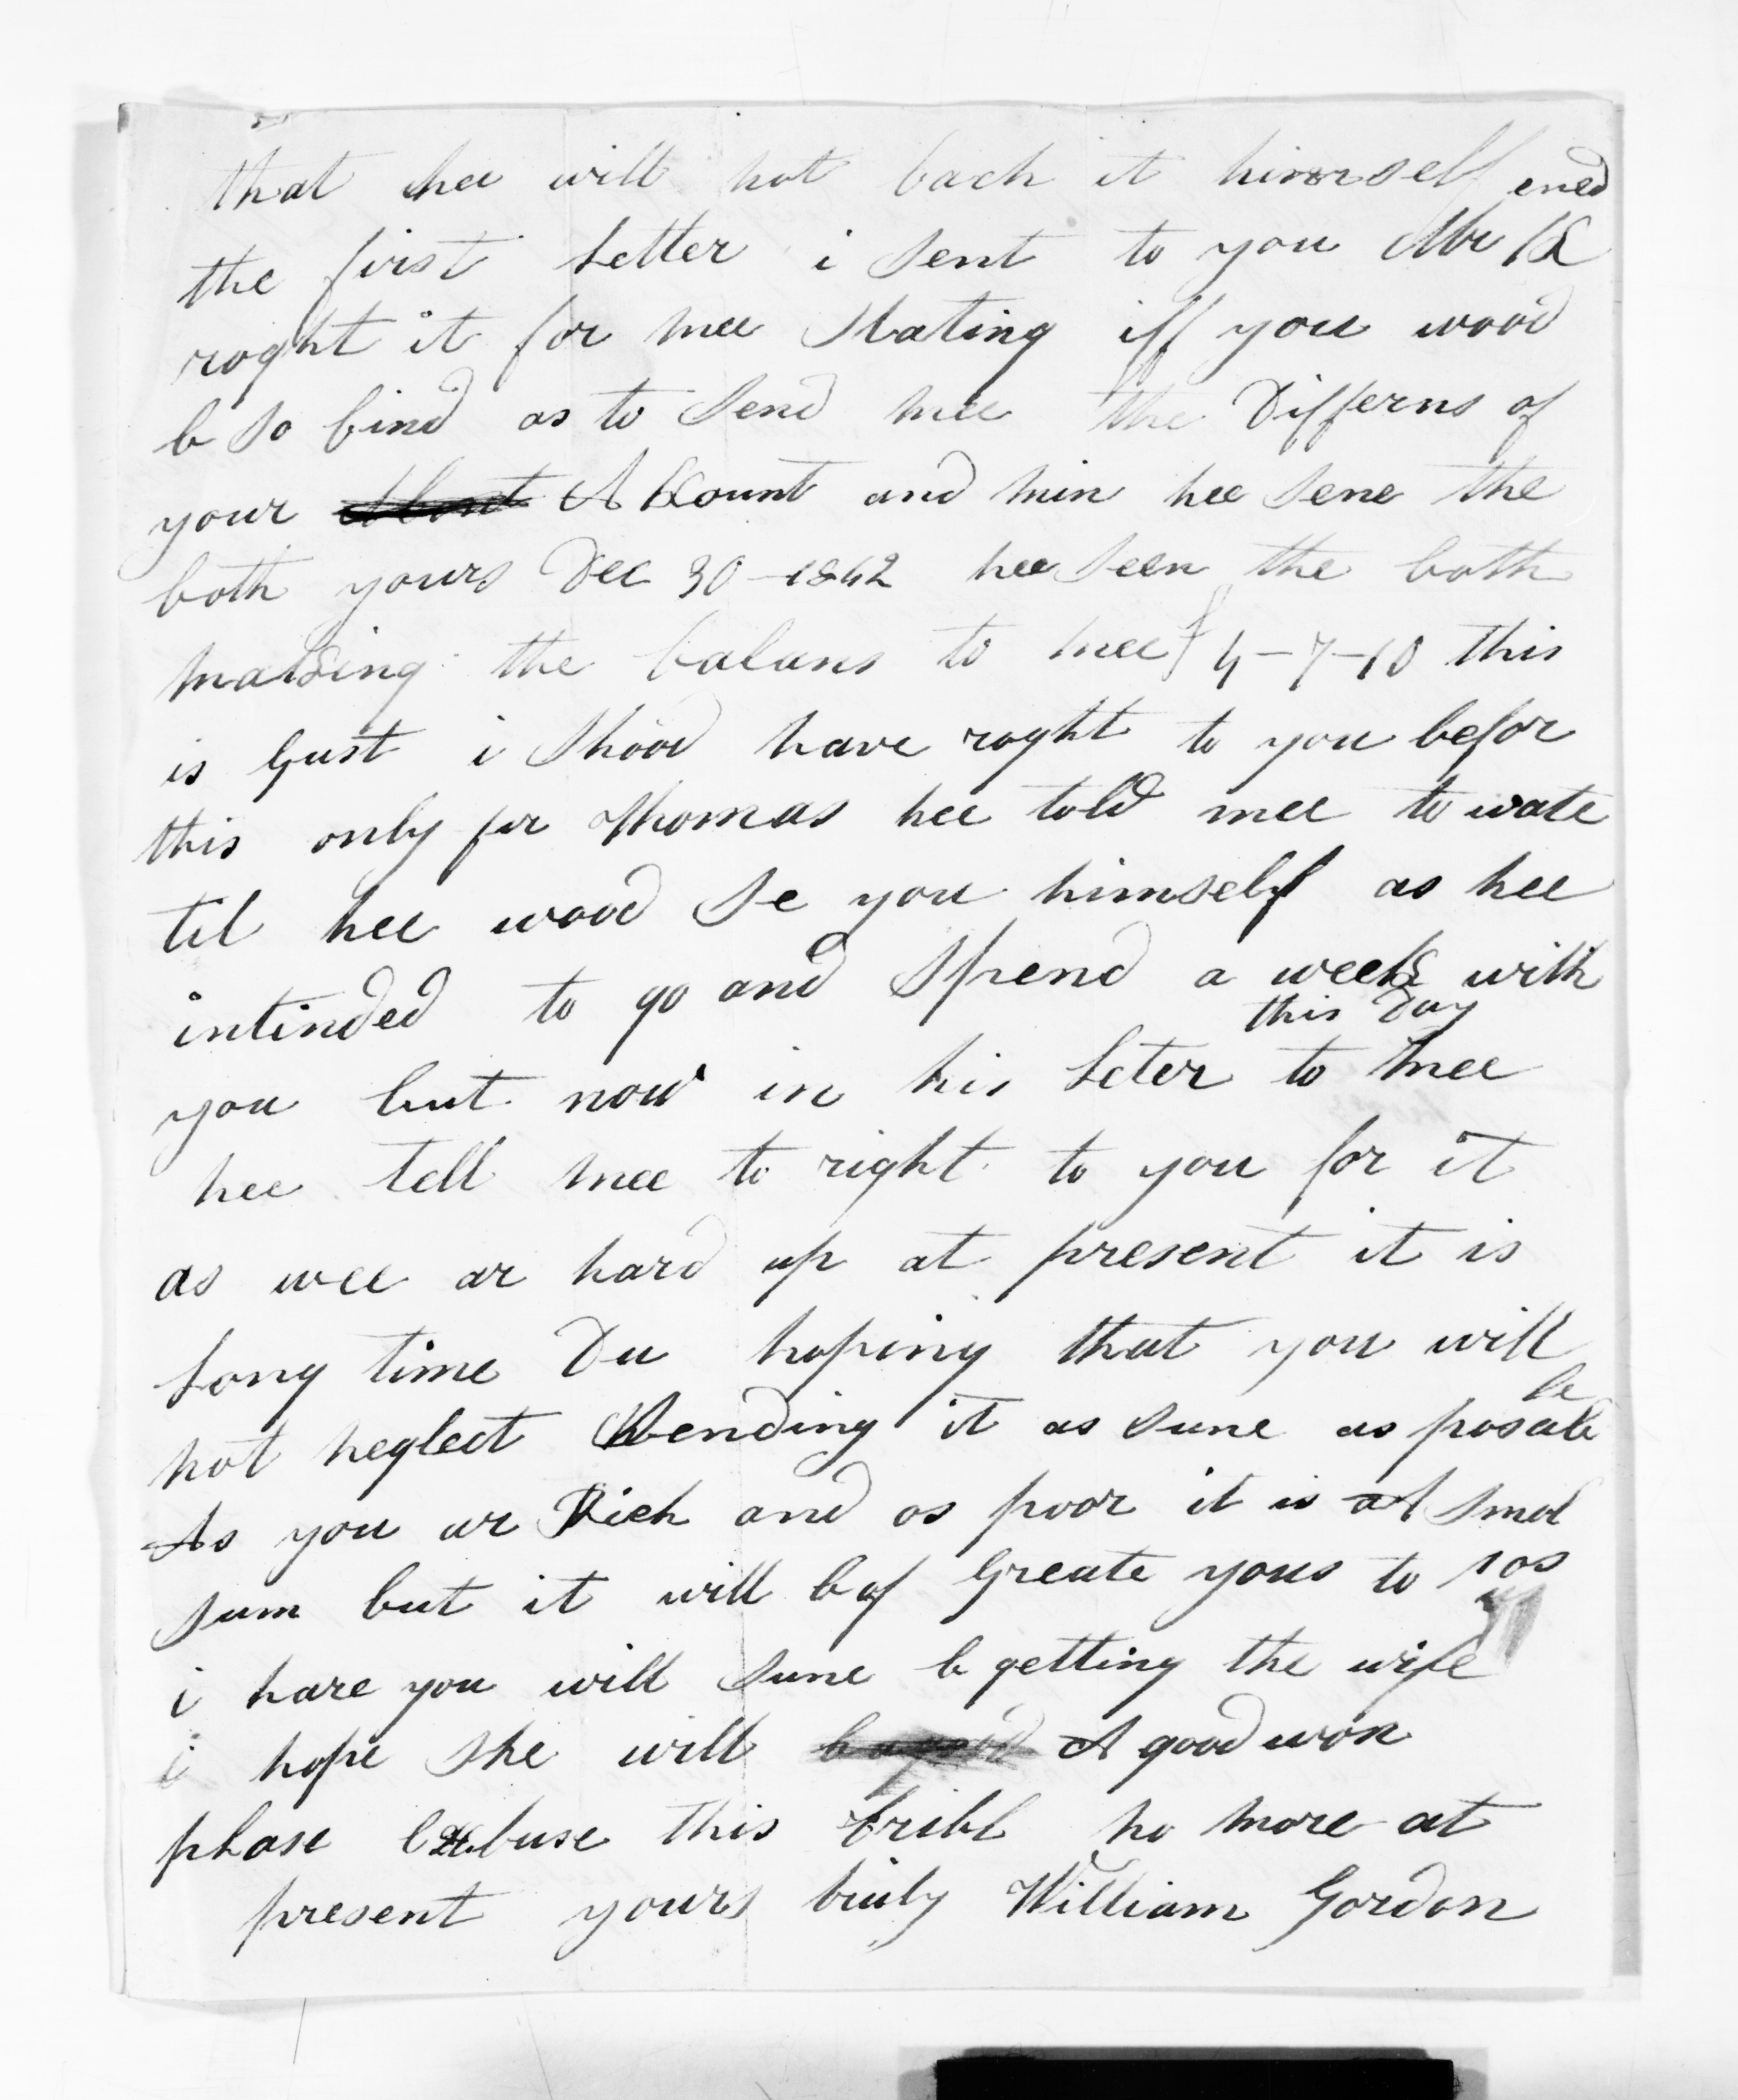 that hee will not back it himself and
the first Letter i Sent to you Mr K
roght it for mee Stating iff you wood
b so kind as to Send mee the Differns of
your Akount and min hee sene the
both yours Dec 30 - 1842 hee seen the both
making the balans to mee £ 4-7-10 this
is Gust i Shood have roght to you befor
this only for Thomas hee told mee to wate
til hee wood Se you himself as hee
intinded to go and Spend a week with
this Day
you but now in his Leter to mee
hee tell mee to right to you for it
as wee ar hard up at present it is
Long time Du hoping that you will
not neglect Sending it as sune as posable
As you ar Rich and os poor it is A Smol
sum but it will b of Greate yous to os
i hare you will sune b getting the wife
i hope She will A good won
plase Exkuse this no more at
present yours truly William Gordon